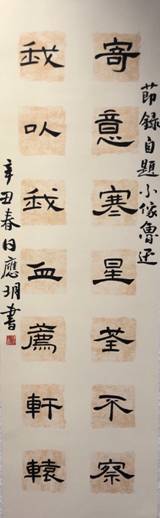 節錄自題小像魯迅
寄意寒星荃不察
我以我血薦軒轅
辛丑春日應玥書